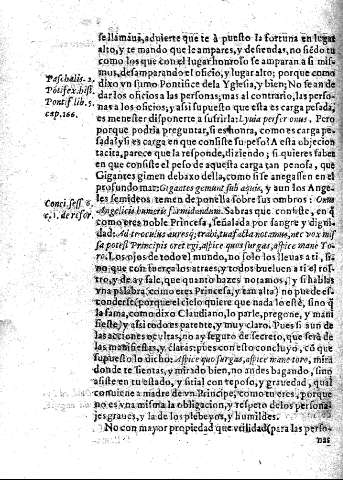 se llamàua, aduierte que te à puesto la fortuna en lugar
alto, y te mando que le ampares, y defiendas, no siēdo tu
como los que con el lugar honroso se amparan a si mis-
mos, desamparando el oficio, y lugar alto; porque como
dixo vn sumo Pontifice de la Yglesia, y bien; No se an de
dar los oficios a las personas; mas al contrario, las perso-
nas a los oficios; y assi supuesto que esta es carga pesada,
es menester disponerte a sufrirla: Lyuia perfer onus. Pero
porque podria preguntar, si es honra, como es carga pe-
sada? y si es carga en que consiste su peso? A esta objecion
tacita, parece que la responde, diziendo; si quieres saber
en que consiste el peso de aquesta carga tan penosa, que
Gigantes gimen debaxo della, como si se anegassen en el
profundo mar: Gigantes gemunt sub aquis, y aun los Ange-
les semideos temen de ponella sobre sus ombros: Onus
Angelicis humeris formidandum. Sabras que consiste, en q̄
como eres noble Princesa, señalada por sangre y digni-
dad: Ad te oculus auresq; trahi, tua facta notamus, nec vox mis
sa potest Principis ore tegi, aspice quo surgas, aspice mane To-
ro. Los ojos de todo el mundo, no solo los lleuas a ti, si-
no que con inercia los atraes, y todos bueluen a ti el ros-
tro, y de ay sale, que quanto hazes notamos, y si hablas
vna palabra (como eres Princesa, y tan alta) no puede es-
conderse (porque el cielo quiere que nada lo estè, sino q̄
la fama, como dixo Claudiano, lo parle, pregone, y mani
fieste) y assi todo es patente, y muy claro. Pues si aun de
las acciones ocultas, no ay seguro de secreto, que serà de
las manifiestas, y claras? pues con esto concluyo, cō que
supuesto lo dicho: Aspice quo surgas, aspice mane toro, mira
donde te sientas, y mirado bien, no andes bagando, sino
assiste en tu estado, y sitial con reposo, y grauedad, qual
conuiene a madre de vn Principe, como tu eres, porque
no es vna misma la obligacion, y respeto de los persona-
jes graues, y la de los plebeyos, y humildes.
No con mayor propiedad que vtilidad (para las perso-
nas
Paschalis. 2.
Põtifex. hist.
Pontif. lib. 5.
cap. 166.
Conci. sess. 6.
c. 1. de refor.